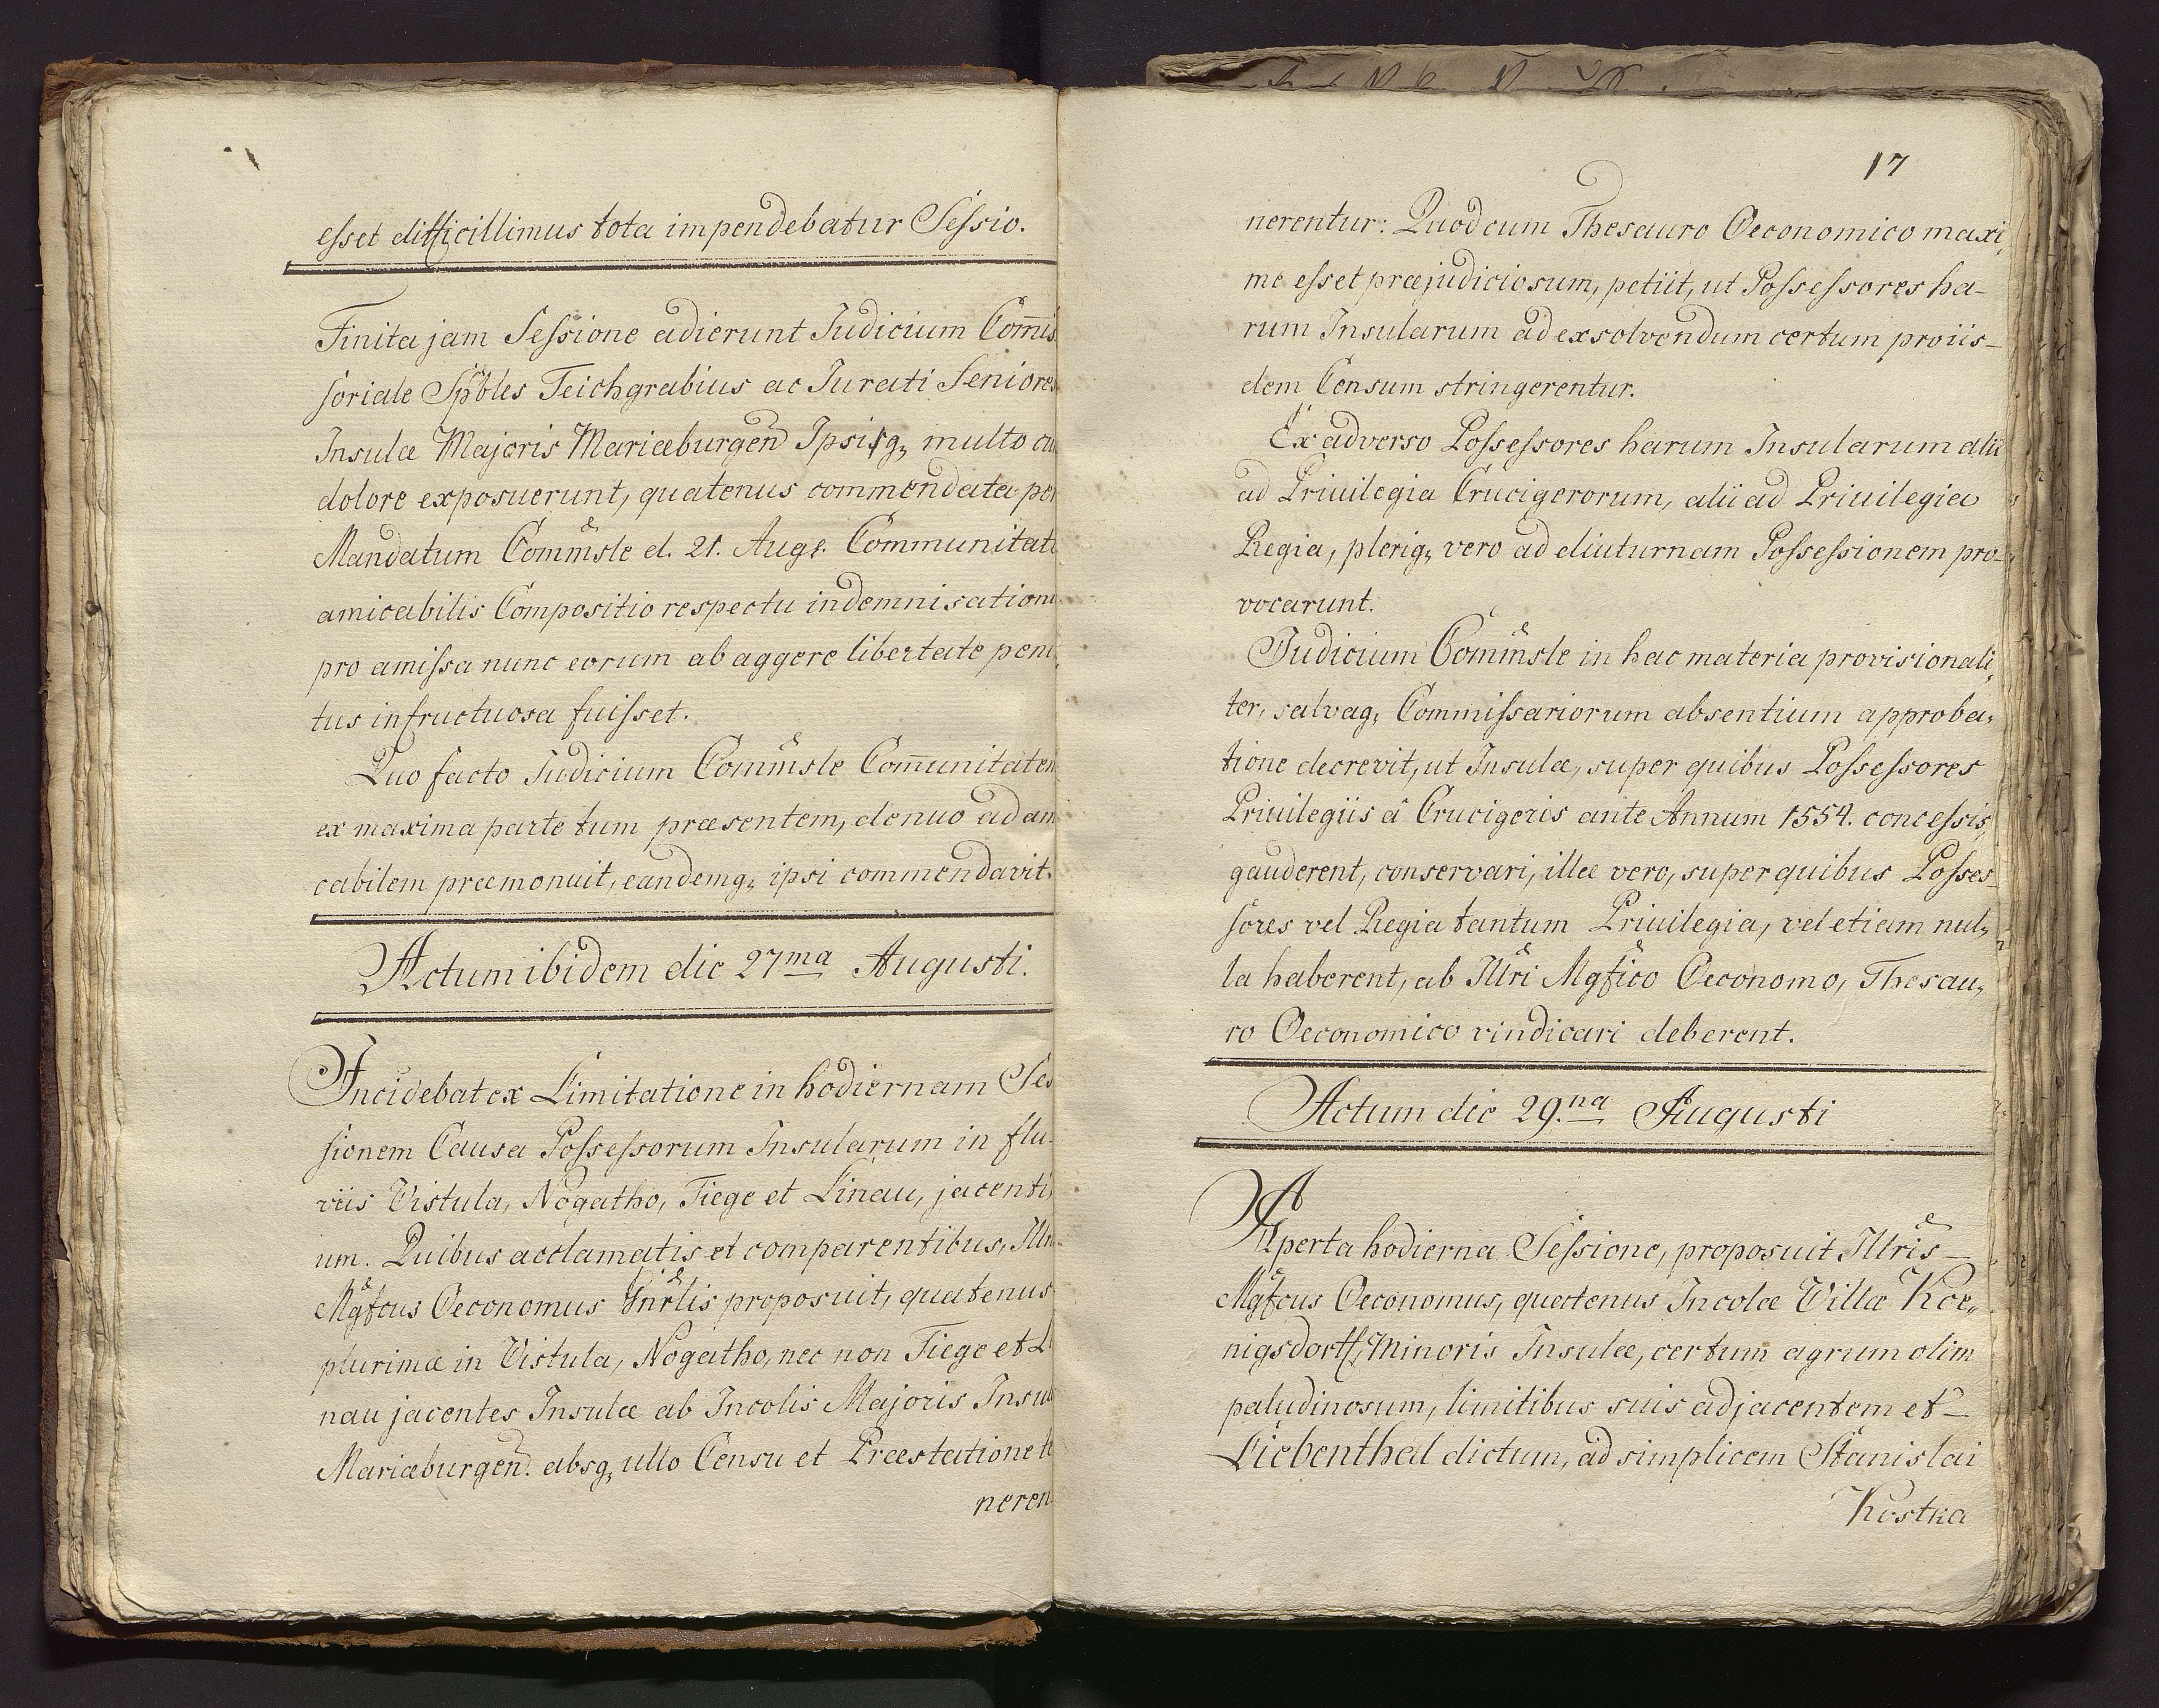 esset difficillimus tota impendebatur Sessio.
Finita jam Sessione adierunt Judicium Com̄is
soriale Spbles Teichgrabius ac Jurati Seniores
Insulæ Majoris Mariæburgen Ipsisq, multo cu
dolore exposuerunt, quatenus commendata per
Mandatum Commsle d. 21. Aug. Communitati
amicabilis Compositio respectu indemnisationi
pro amissa nunc eorum ab aggere libertate peni,
tus infructuosa fuisset.
Quo facto Judicium Commsle Com̄unitatem
ex maxima parte tum præsentem, denuo ad am
cabilem præmonuit, eandemq, ipsi commendavit.
Actum ibidem die 27ma Augusti.
Incidebat ex Limitatione in hodiernam Ses
sionem Causa Possessorum Insularum in flu-
viis Vistula, Nogatho, Tiege et Linau, jacenti,
um. Quibus acclamatis et comparentibus, Illri
Mgfcus Oeconomus Gnrlis proposuit, quatenus
plurimæ in Vistula, Nogatho, nec non Tiege et Li
nau jacentes Insulæ ab Incolis Majoris Insul
Mariæburgen. absq, ullo Censu et Præstatione te
neren
17
nerentur: Quod cum Thesauro Oeconomico maxi,
me esset præjudiciosum, petiit, ut Possessores ha-
rum Insularum ad exsolvendum certum pro iis-
dem Censum stringerentur.
Ex adverso Possessores harum Insularum alii
ad Priuilegia Crucigerorum, alii ad Priuilegia
Regia, pleriq, vero ad diuturnam Possessionem pro-
vocarunt.
Judicium Commsle in hac materia provisionali,
ter, salvaq, Commissariorum absentium approba,
tione decrevit, ut Insulæ, super quibus Possessores
Priuilegiis â Crucigeris ante Annum 1554. concessis,
gauderent, conservari, illæ vero, super quibus Posses-
sores vel Regia tantum Priuilegia, vel etiam nul,
la haberent, ab Illri Mgfico Oeconomo, Thesau,
ro Oeconomico vindicari deberent.
Actum die 29.na Augusti
Aperta hodierna Sessione, proposuit Illris-
Mgfcus Oeconomus, quatenus Incolæ Villæ Koe,
nigsdorff, Minoris Insulæ, certum agrum olim
paludinosum, limitibus suis adjacentem et-
Liebenthal dictum, ad simplicem Stanislai
Kostka